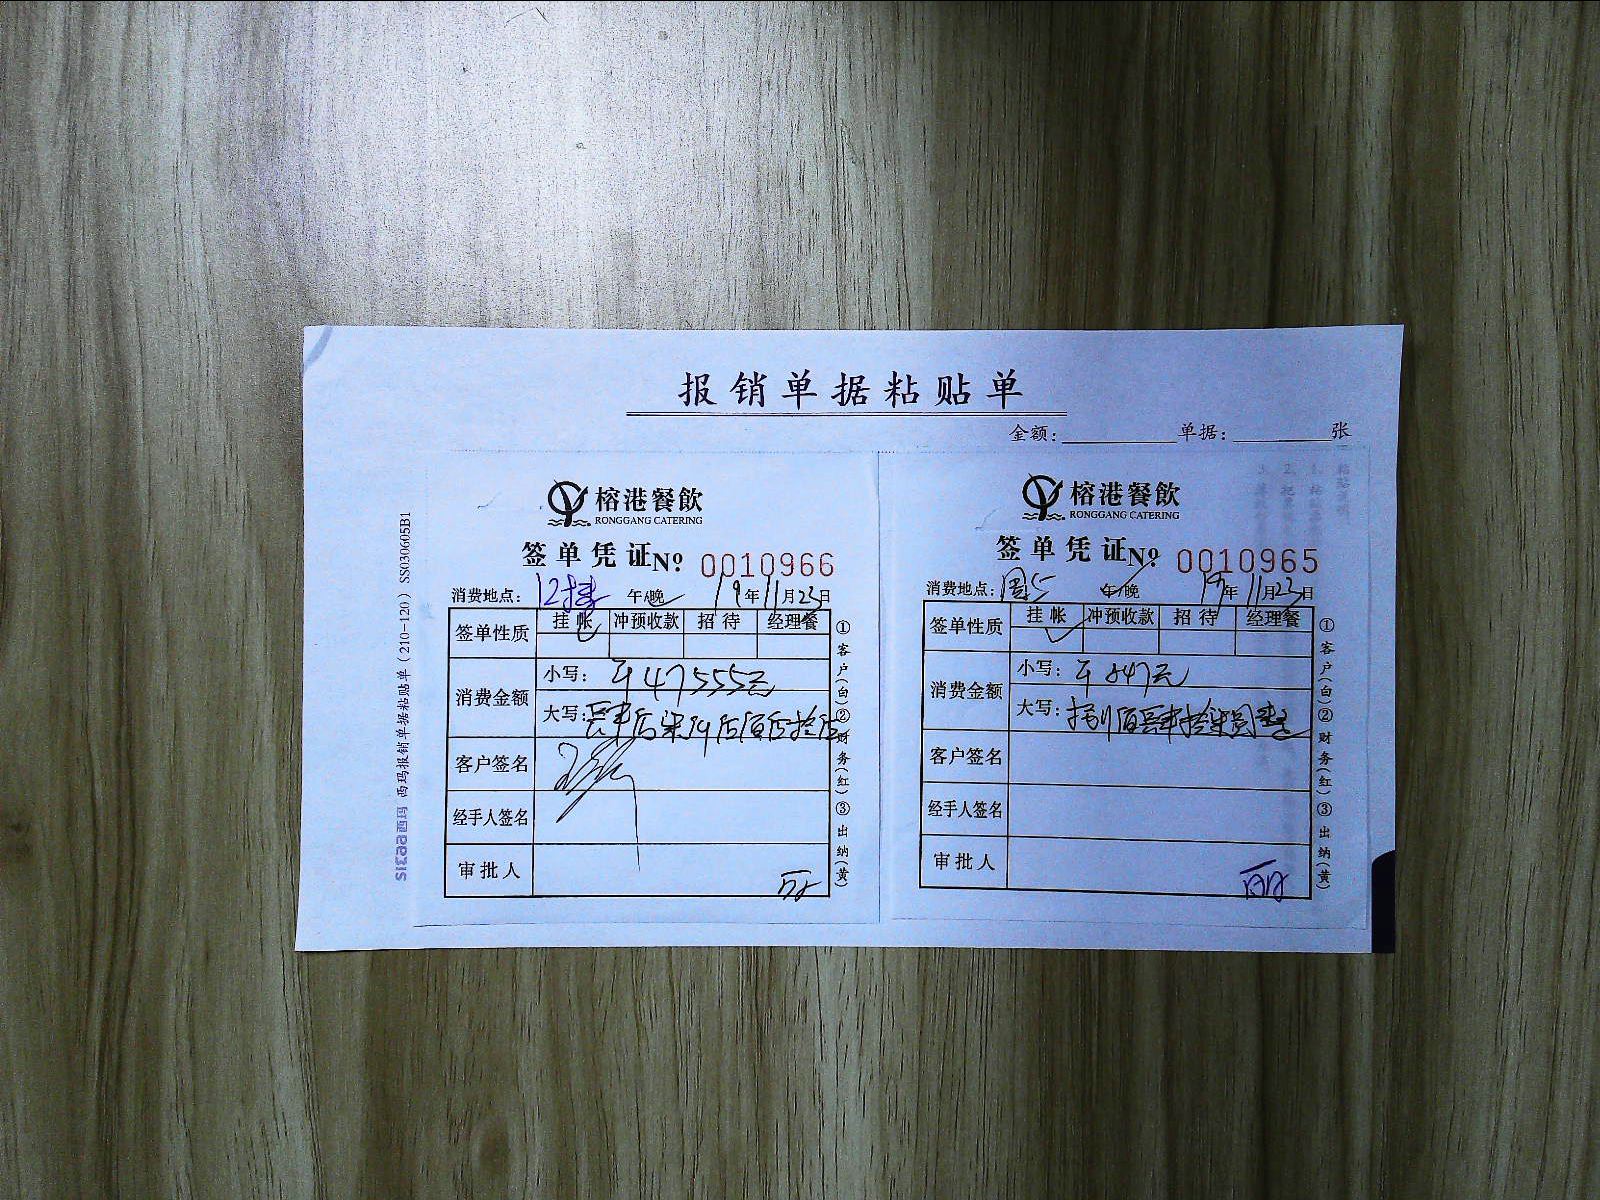 报销单据粘贴单
金额: 单据: 张
西玛报销单据粘贴单(210-120) SS030605B1
榕港餐飲
RONGGANG CATERING
签单凭证 № 0010966
消费地点: 12楼 午/晚 19年11月23日
签单性质 挂帐 冲预收款 招待 经理餐
消费金额 小写: 47555元
大写:
客户签名
经手人签名
审批人
①客户(白)②财务(红)③出纳(黄)
榕港餐飲
RONGGANG CATERING
签单凭证 № 0010965
消费地点: 午/晚 19年11月23日
签单性质 挂帐 冲预收款 招待 经理餐
消费金额 小写: 847元
大写: 捌佰肆拾柒圆整
客户签名
经手人签名
审批人
①客户(白)②财务(红)③出纳(黄)